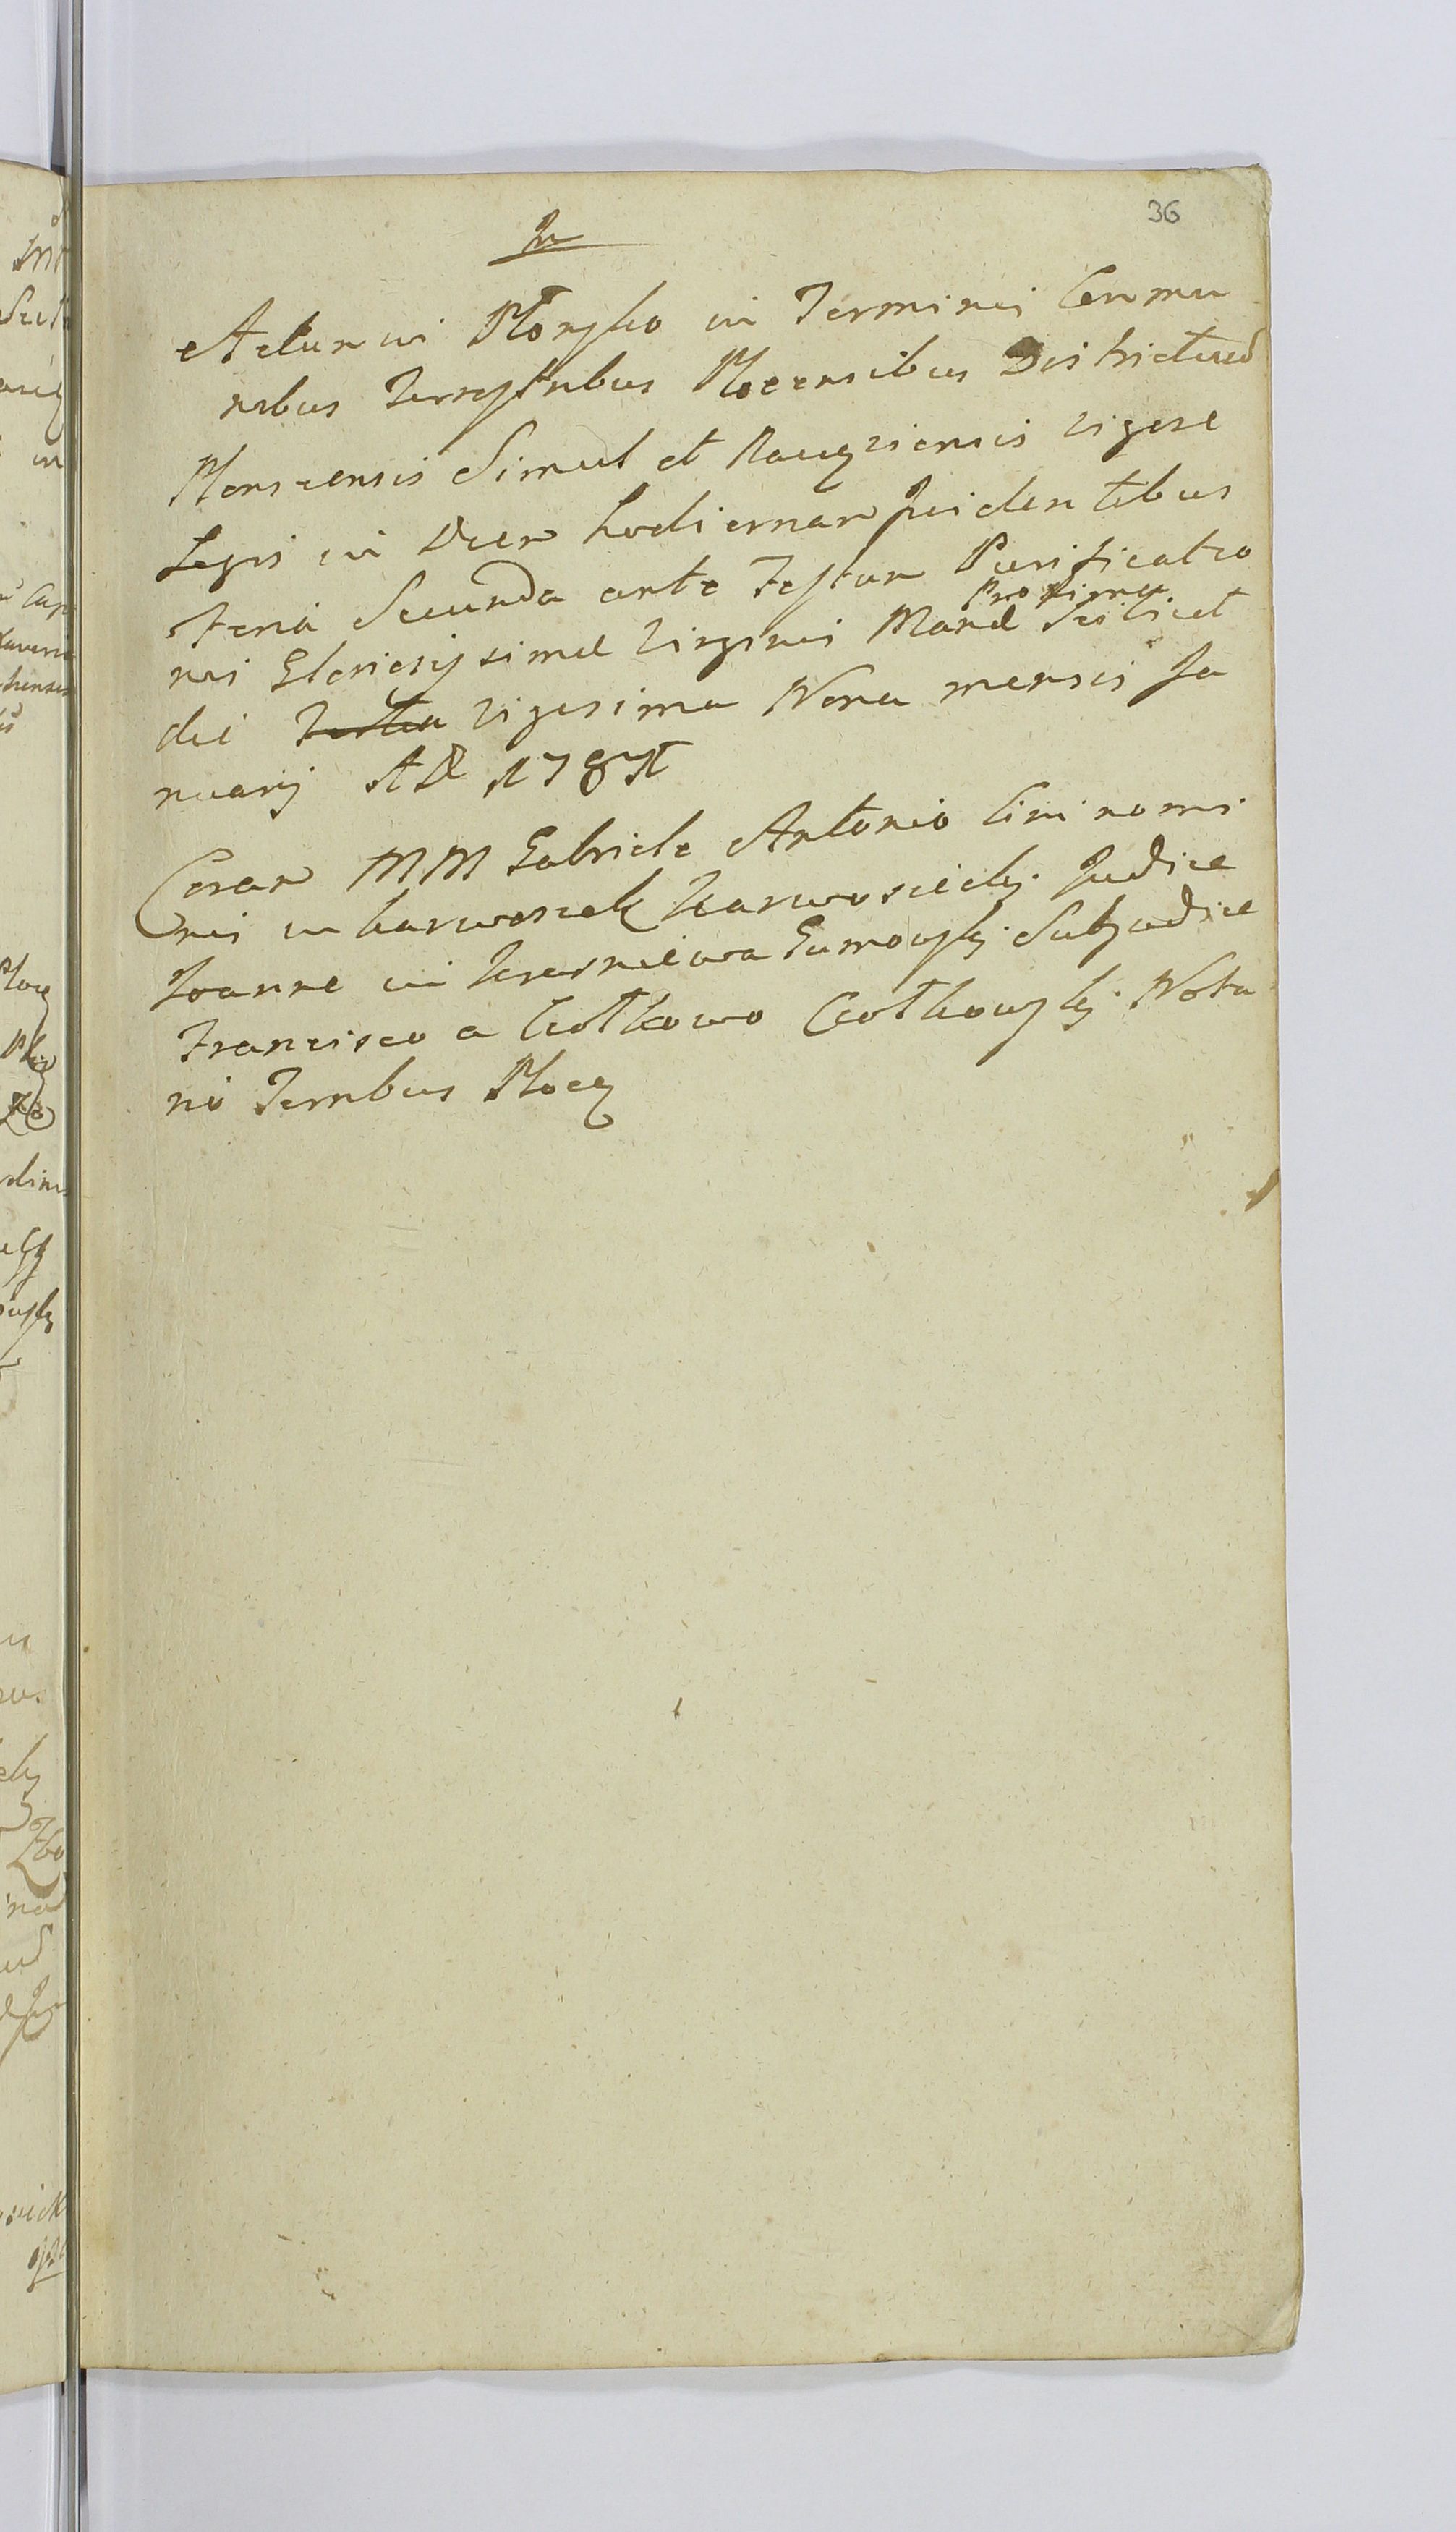 36
In
Actum in Płonsko in Terminis Commu
nibus Terrestribus Plocensibus Districtus
Plonscensis Simul et Raugziensis vigore
Legis in Diem hodiernam Incidentibus
Feria Secunda ante Festum Purificatio
nis Gloriosissimae Virginis Mariae proxima Scilicet
die vigesima Nona mensis Ja
nuarij AD 178
Coram MM Gabriele Antonio bininomi
nis in Karwosiek Karwosiecki Judice
Joanne in Gumowski Subjudice
Francisco a Czołkowo Czołkowski Nota
rio Terrbus Płoc